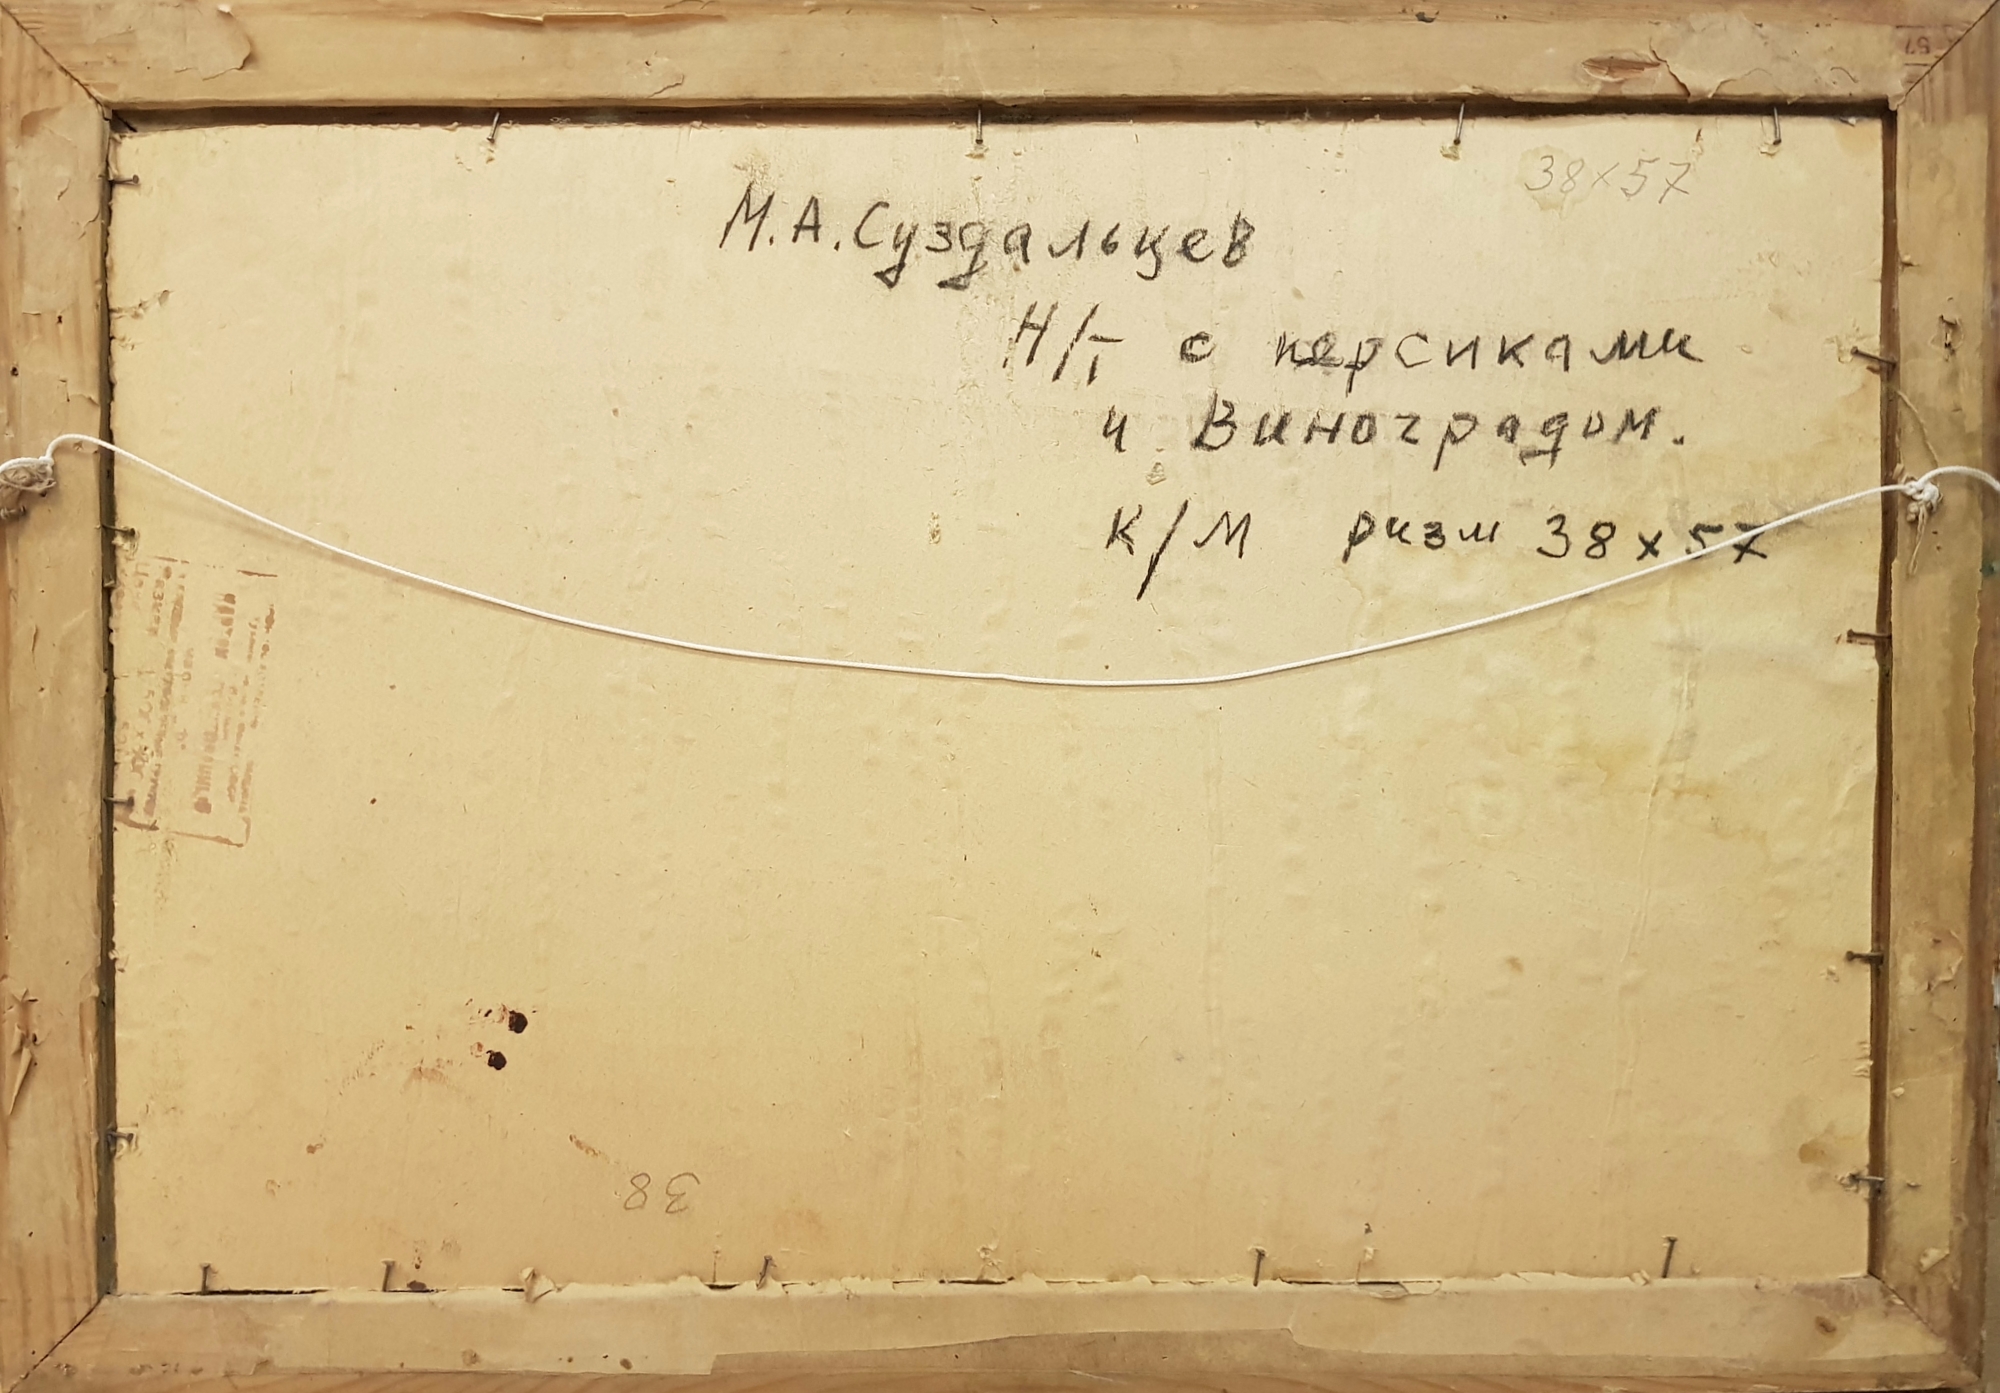 38х57
М.А.Суздальцев
Н/Т с персиками
и Виноградом.
К/М разм 38х57
38